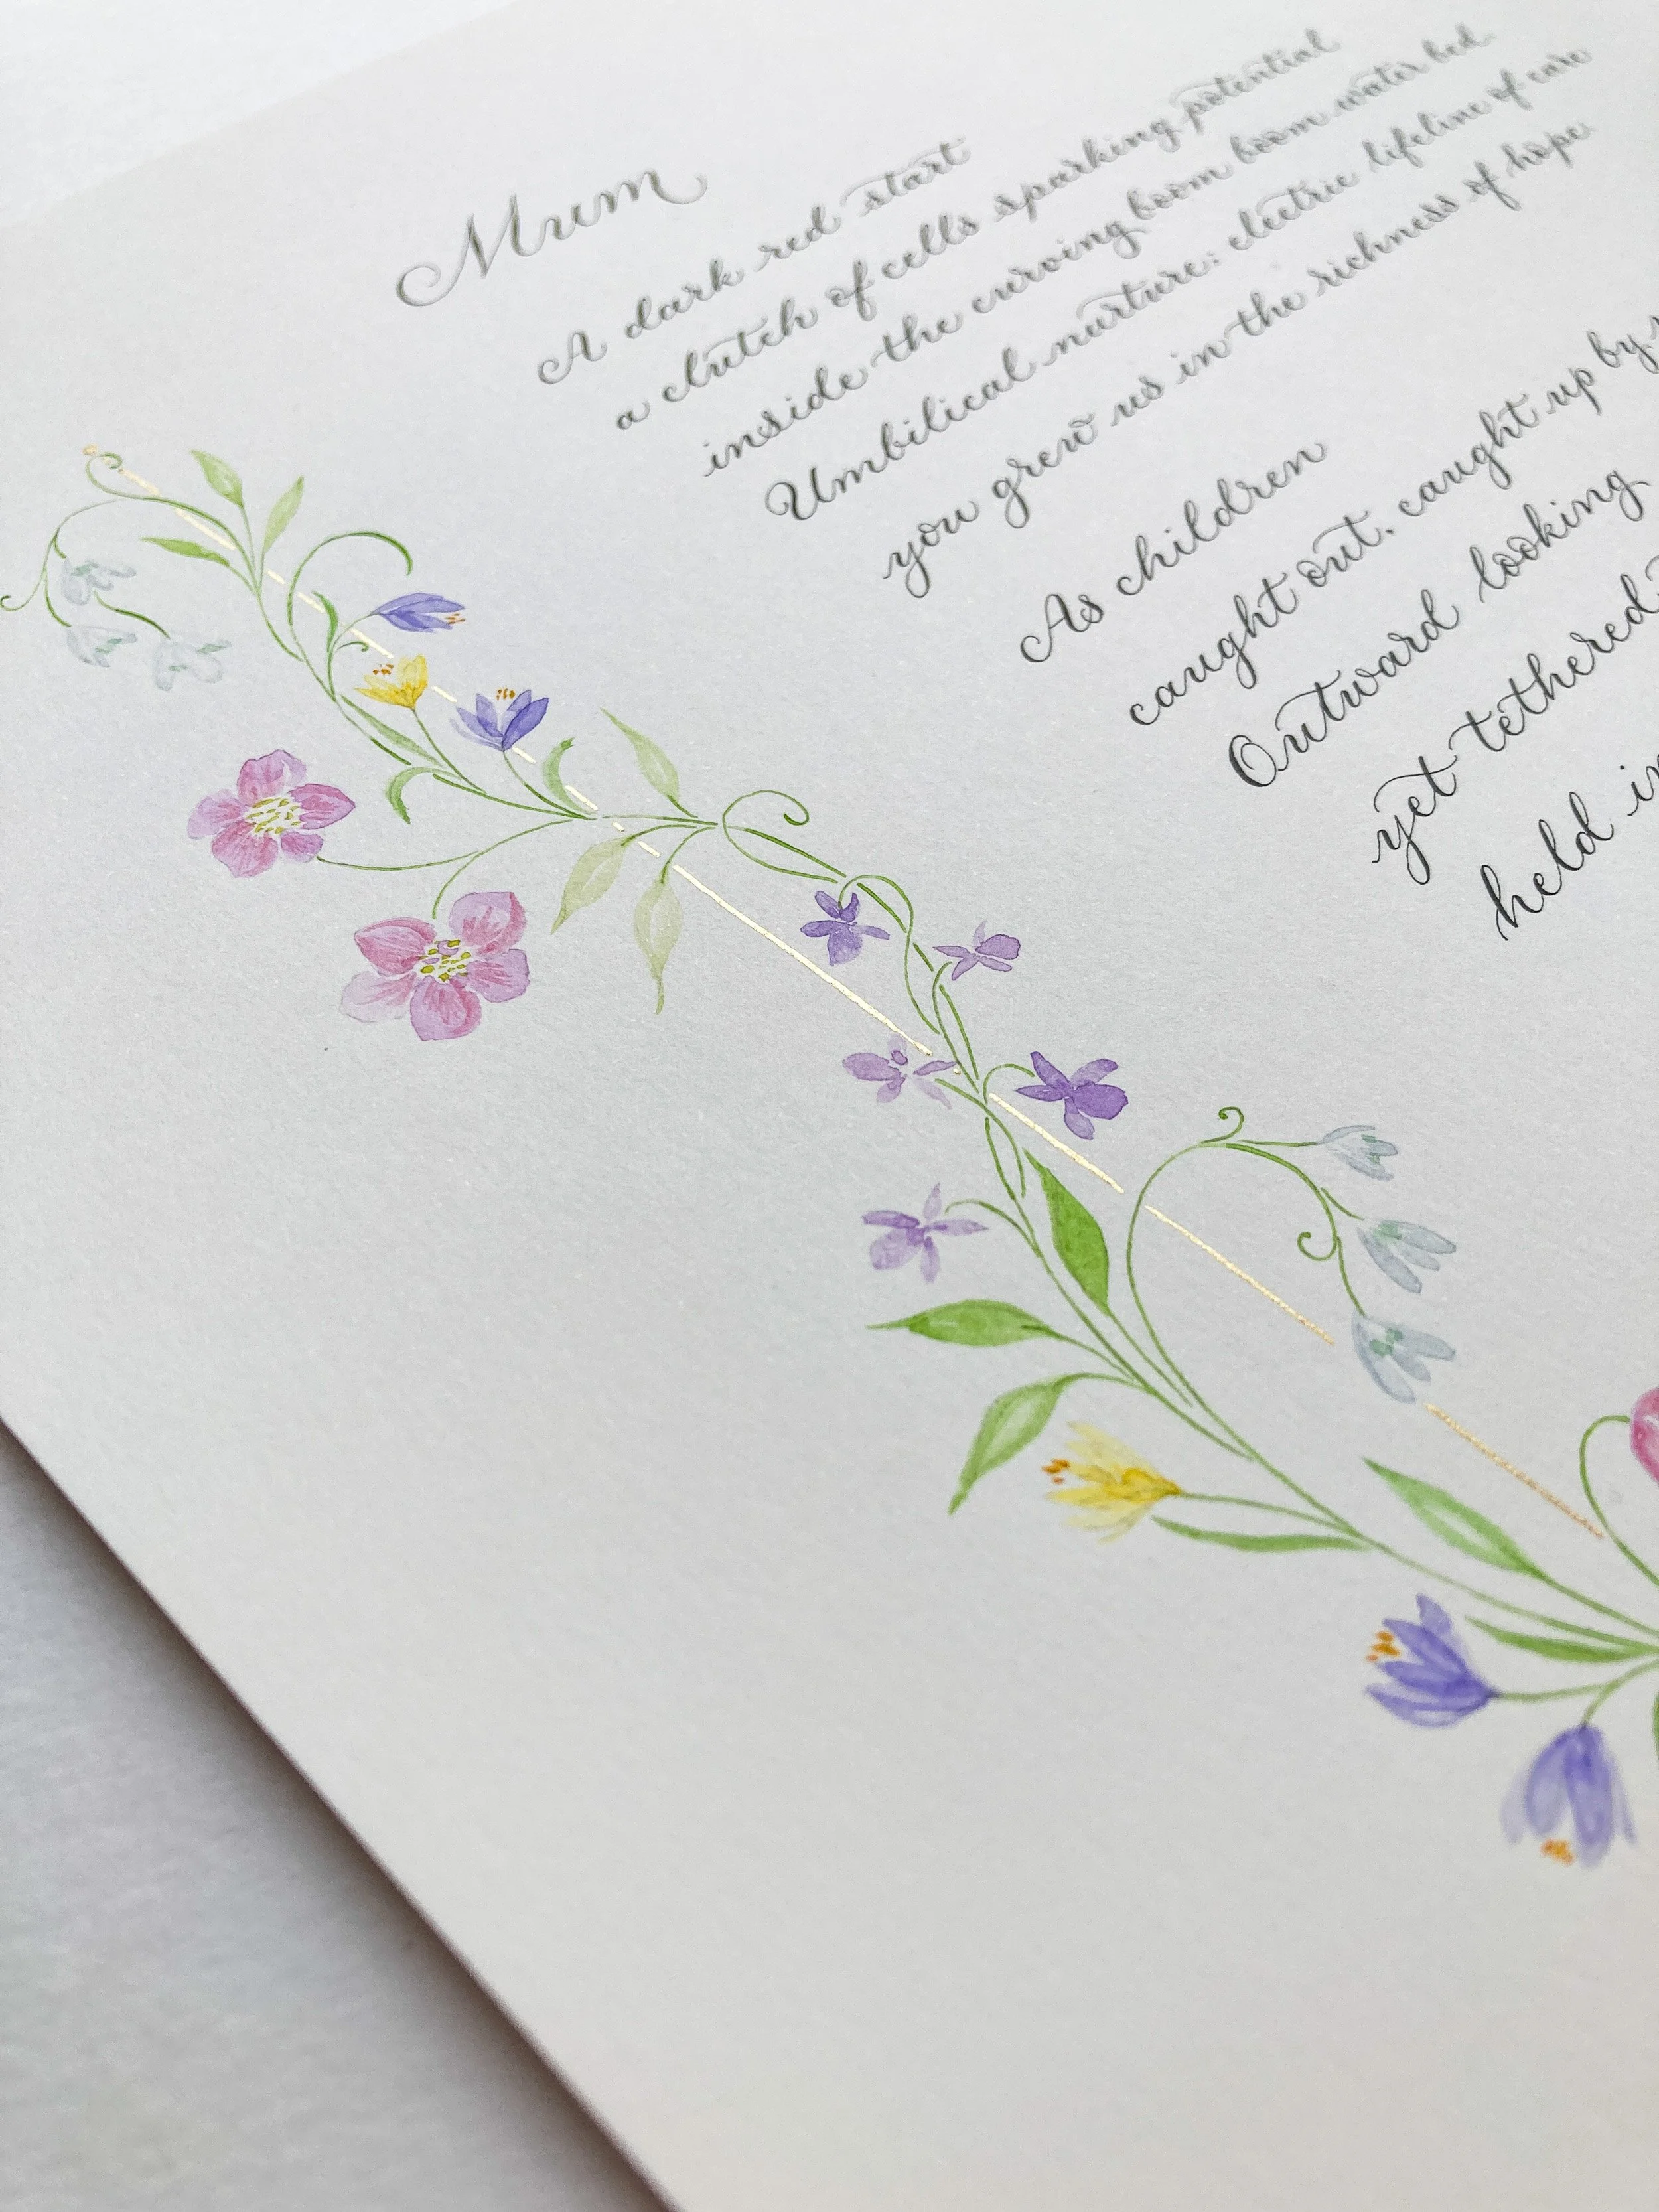 Mum
A dark red start
a clutch of cells sparking potential
inside the curving boom boom water bed.
Umbilical nurture: electric lifeline of care
you grew us in the richness of hope.
As children
caught out, caught up by
Outward looking
yet tethered
held